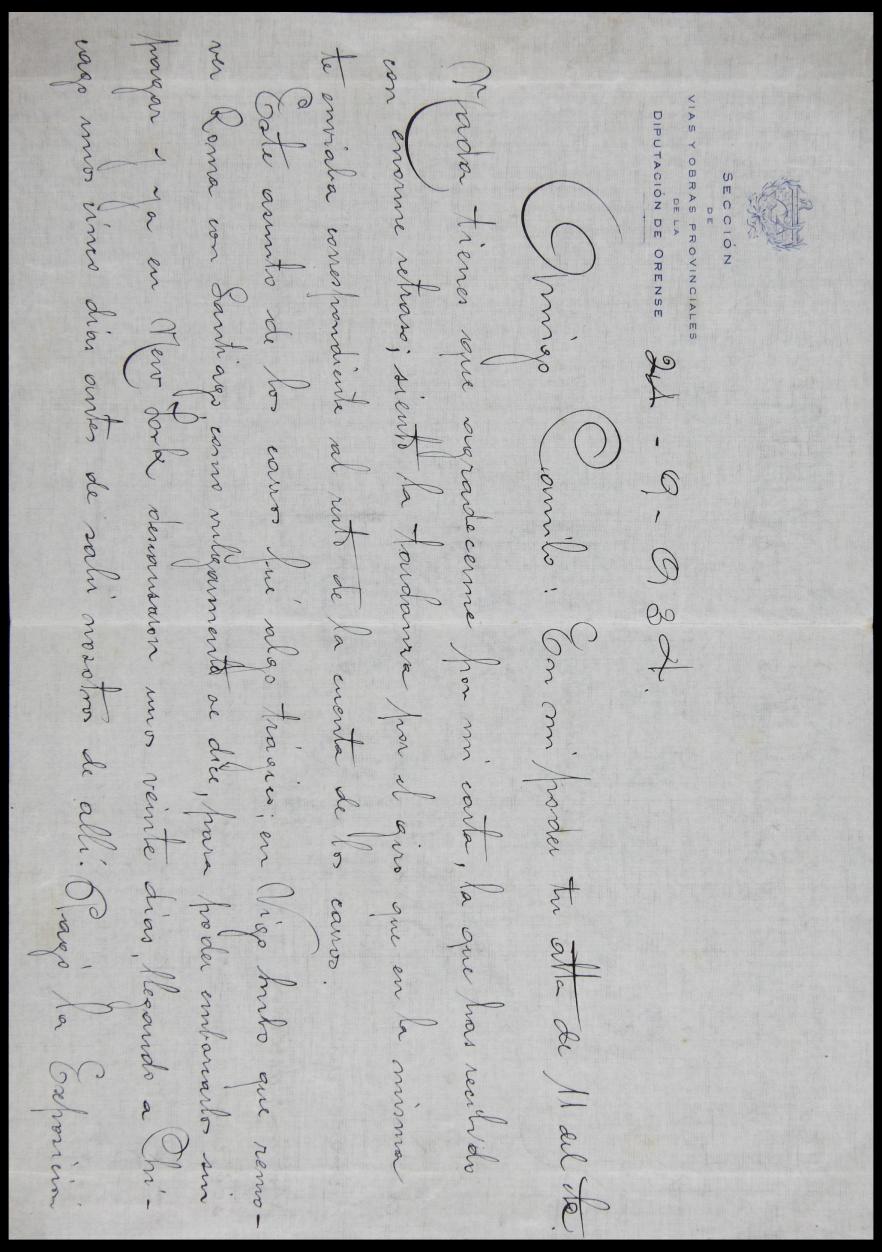 SECCIÓN
DE
VIAS Y OBRAS PROVINCIALES
DE LA
DIPUTACIÓN DE ORENSE
24-9-934.
Amigo Camilo: En mi poder tu atta de 11 del cte.
Nada tienes que agradecerme por mi carta, la que has recibido
con enorme retraso; siento la tardanza por el giro que en la misma
te enviaba correspondiente al resto de la cuenta de los carros.
Este asunto de los carros fué algo trágico; en Vigo hubo que remo-
ver Roma con Santiago, como vulgarmente se dice, para poder embarcarlos sin
pagar y ya en New York descansaron unos veinte días, llegando a Chi-
cago unos cinco días antes de salir nosotros de allí. Pagó la Exposición